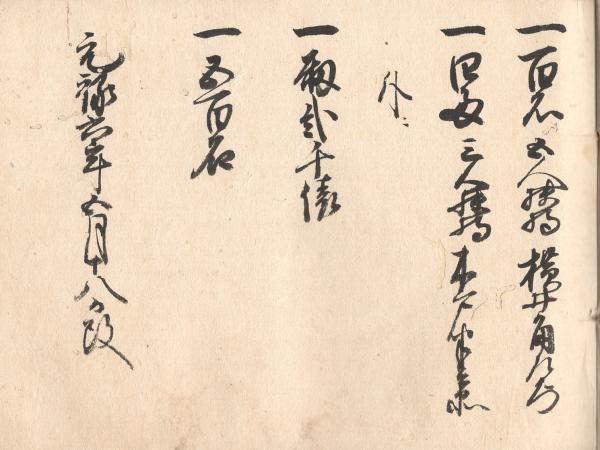 一百石五人扶持 横井角左衛門
一四両三人扶持 木戸
外ニ
一蔵米弐千俵
一五百石
元禄六年五月十八日改